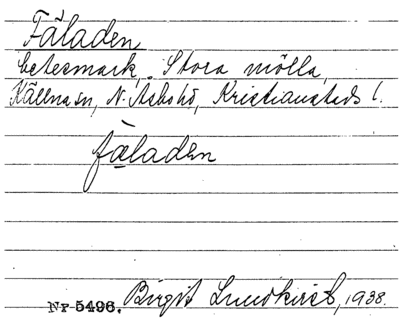 Fäladen,
betesmark, Stora mölla,
Källna sn, N. Åsbo hd, Kristianstads l.
fæladen
Nr 5496. Birgit Lundkvist, 1938.